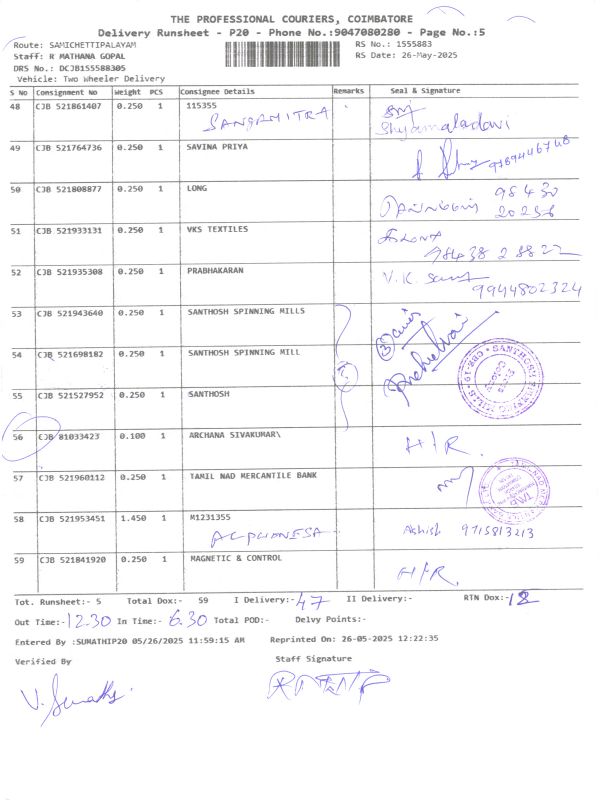 THE PROFESSIONAL COURIERS, COIMBATORE
Delivery Runsheet - P20 - Phone No.:9047080280 - Page No.:5
Route: SAMICHETTIPALAYAM
RS No.: 1555883
Staff: R MATHANA GOPAL
RS Date: 26-May-2025
DRS No.: DCJB155588305
Vehicle: Two Wheeler Delivery
S No Consignment No Weight PCS Consignee Details Remarks Seal & Signature
48 CJB 521861407 0.250 1 115355
SANGAMITRA Shyamaladavi
49 CJB 521764736 0.250 1 SAVINA PRIYA 9789446748
50 CJB 521808877 0.250 1 LONG 98430
20256
51 CJB 521933131 0.250 1 VKS TEXTILES
98438 28822
52 CJB 521935308 0.250 1 PRABHAKARAN V.K.
9944802324
53 CJB 521943640 0.250 1 SANTHOSH SPINNING MILLS
54 CJB 521698182 0.250 1 SANTHOSH SPINNING MILL
3
55 CJB 521527952 0.250 1 SANTHOSH
56 CJB 81033423 0.100 1 ARCHANA SIVAKUMAR\ H/R.
57 CJB 521960112 0.250 1 TAMIL NAD MERCANTILE BANK
58 CJB 521953451 1.450 1 M1231355
Ashish 9715813213
59 CJB 521841920 0.250 1 MAGNETIC & CONTROL H/R.
Tot. Runsheet:- 5 Total Dox:- 59 I Delivery:- 47 II Delivery:- RTN Dox:- 12
Out Time:- 12.30 In Time:- 6.30 Total POD:- Delvy Points:-
Entered By :SUMATHIP20 05/26/2025 11:59:15 AM Reprinted On: 26-05-2025 12:22:35
Verified By Staff Signature